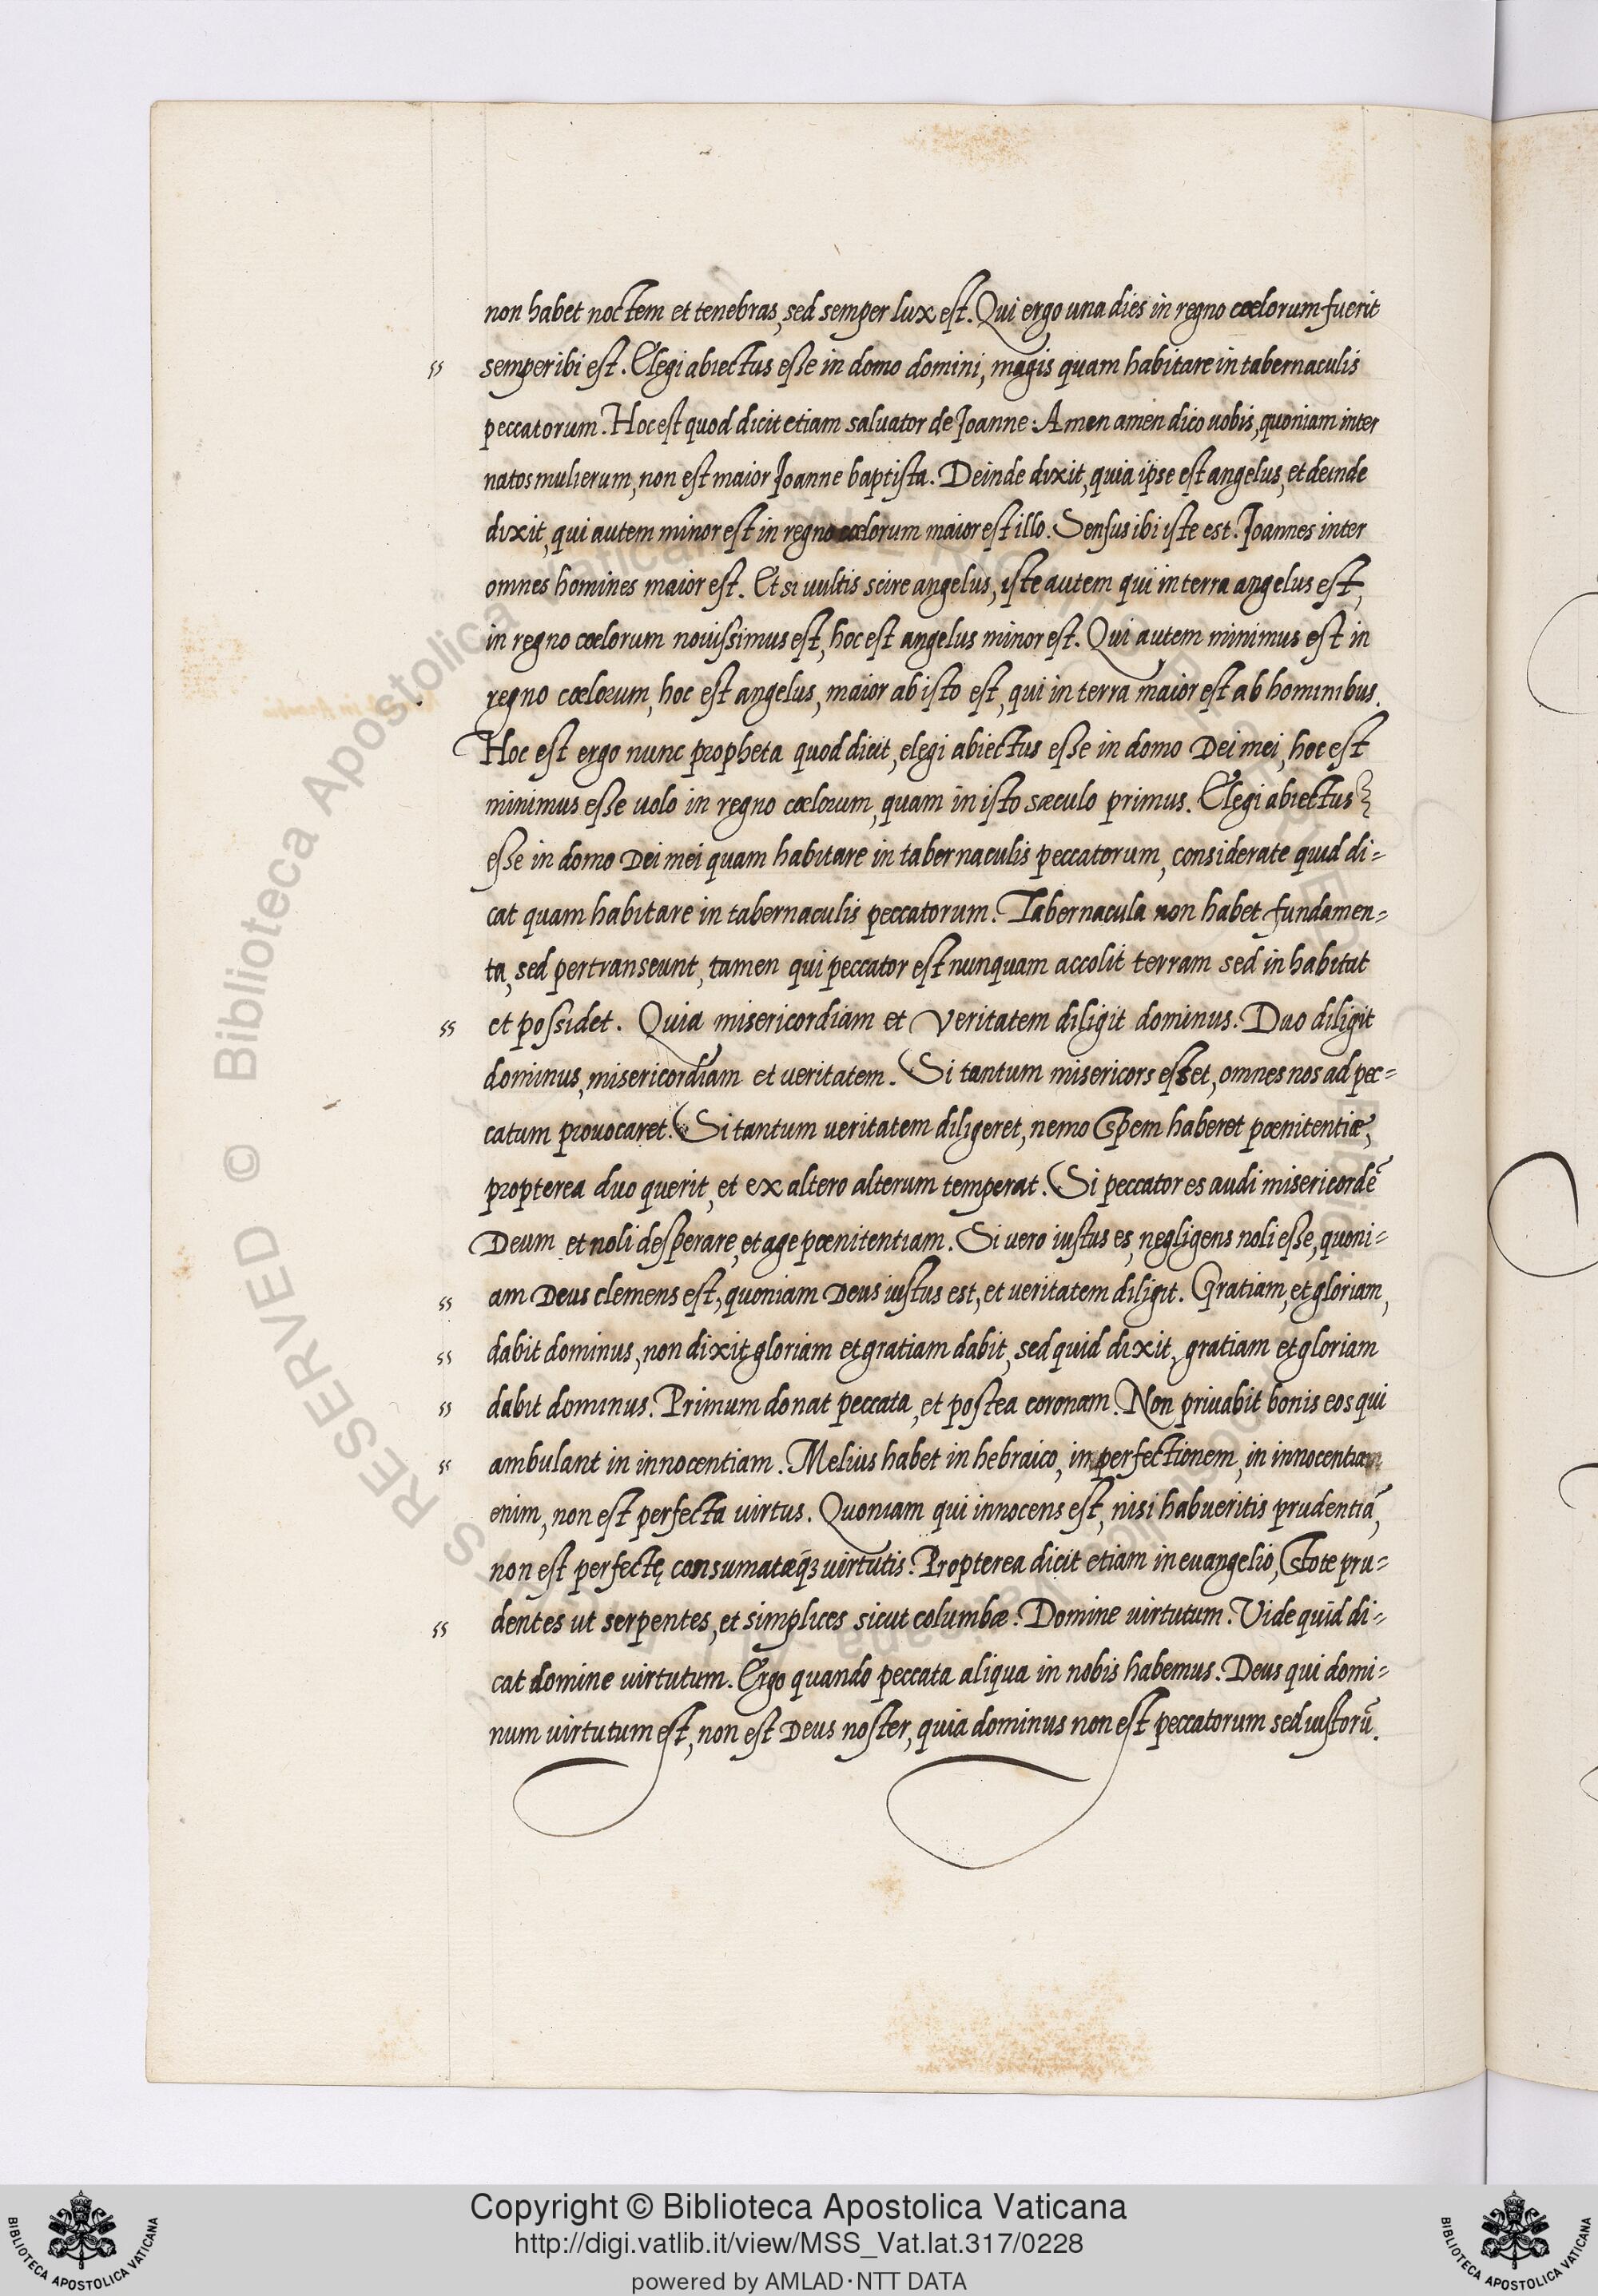 non habet noctem et tenebras, sed semper lux est. Qui ergo una dies in regno cœlorum fuerit
semper ibi est. Elegi abiectus esse in domo domini, magis quam habitare in tabernaculis
peccatorum. Hoc est quod dicit etiam saluator de Joanne: Amen amen dico uobis, quoniam inter
natos mulierum, non est maior Joanne baptista. Deinde dixit, quia ipse est angelus, et deinde
dixit, qui autem minor est in regno cœlorum maior est illo. Sensus ibi iste est. Joannes inter
omnes homines maior est. Et si uultis scire angelus, iste autem qui in terra angelus est,
in regno cœlorum nouissimus est, hoc est angelus minor est. Qui autem minimus est in
regno cœlorum, hoc est angelus, maior ab isto est, qui in terra maior est ab hominibus.
Hoc est ergo nunc propheta quod dicit, elegi abiectus esse in domo Dei mei, hoc est
minimus esse uolo in regno cœlorum, quam in isto sæculo primus. Elegi abiectus
esse in domo Dei mei quam habitare in tabernaculis peccatorum, considerate quid di=
cat quam habitare in tabernaculis peccatorum. Tabernacula non habet fundamen=
ta, sed pertranseunt, tamen qui peccator est nunquam accolit terram sed inhabitat
et possidet. Quia misericordiam et veritatem diligit dominus. Duo diligit
dominus, misericordiam et ueritatem. Si tantum misericors esset, omnes nos ad pec=
catum prouocaret. Si tantum ueritatem diligeret, nemo spem haberet pœnitentiæ,
propterea duo querit, et ex altero alterum temperat. Si peccator es audi misericordē
Deum et noli desperare, et age pœnitentiam. Si uero iustus es, negligens noli esse, quoni=
am Deus clemens est, quoniam Deus iustus est, et ueritatem diligit. Gratiam, et gloriam,
dabit dominus, non dixit gloriam et gratiam dabit, sed quid dixit, gratiam et gloriam
dabit dominus. Primum donat peccata, et postea coronam. Non priuabit bonis eos qui
ambulant in innocentiam. Melius habet in hebraico, in perfectionem, in innocentiam
enim, non est perfecta uirtus. Quoniam qui innocens est, nisi habueritis prudentiā,
non est perfectę consumatæq; uirtutis. Propterea dicit etiam in euangelio, Estote pru=
dentes ut serpentes, et simplices sicut columbæ. Domine uirtutum. Vide quid di=
cat domine uirtutum. Ergo quando peccata aliqua in nobis habemus. Deus qui domi=
num uirtutum est, non est Deus noster, quia dominus non est peccatorum sed iustorū.
Copyright © Biblioteca Apostolica Vaticana
http://digi.vatlib.it/view/MSS_Vat.lat.317/0228
powered by AMLAD·NTT DATA